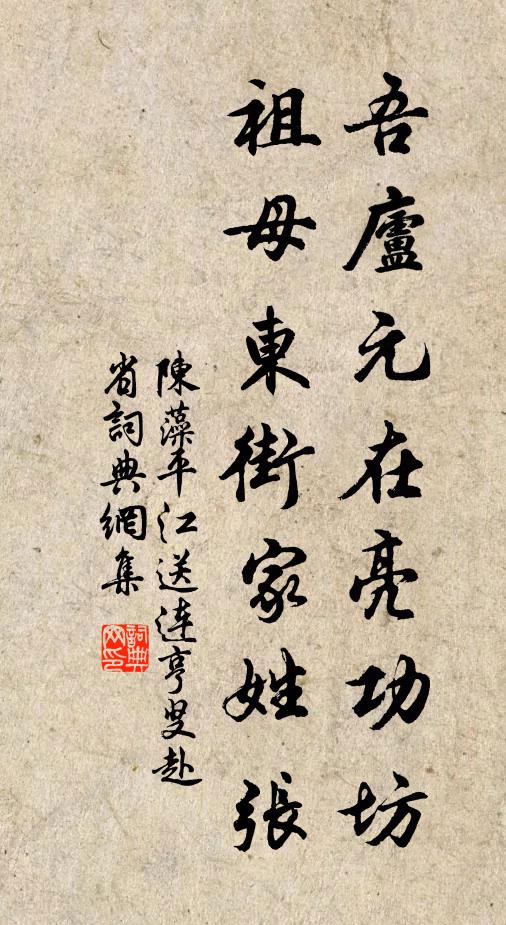 吾廬元在亮功坊
祖母東街家姓張
陳藻平江送連亨叟赴
省詞典網集
詞典网印